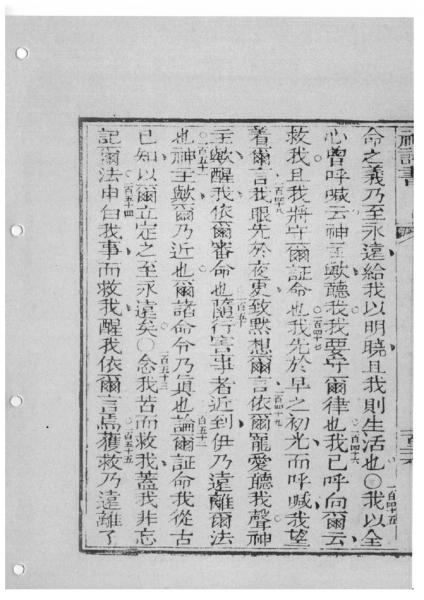 神詩書
命之義乃至永遠給我以明曉且我則生活也○一百四十五我以全
心曾呼喊云神主歟聽我我要守爾律也一百四十六我已呼向爾云
救我且我將守爾証命也一百四十七我先於早之初光而呼喊我望
着爾言一百四十八我眼先於夜更致黙想爾言一百四十九依爾寵愛聽我聲神
主歟醒我依爾審命也一百五十隨行害事者近到伊乃遠離爾法
也一百五十一神主歟爾乃近也爾諸命令乃真也一百五十二論爾証命我從古
已知以爾立定之至永遠矣○一百五十三念我苦而救我蓋我非忘
記爾法一百五十四申白我事而救我醒我依爾言焉一百五十五獲救乃遠離了